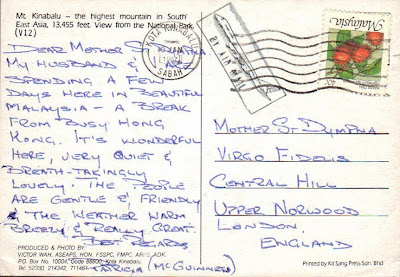 Mt. Kinabalu – the highest mountain in South
East Asia, 13,455 feet. View from the National Park.
(V12)
DEAR MOTHER ST DYMPNA
MY HUSBAND & I ARE
SPENDING A FEW
DAYS HERE IN BEAUTIFUL
MALAYSIA – A BREAK
FROM BUSY HONG
KONG. IT'S WONDERFUL
HERE, VERY QUIET &
BREATH-TAKINGLY
LOVELY. THE PEOPLE
ARE GENTLE & FRIENDLY
& THE WEATHER WARM
BREEZY & REALLY GREAT.
BEST REGARDS
PATRICIA (MCGUINNESS)
PRODUCED & PHOTO BY:
VICTOR WAH, ASEAPS, HON. FSSPC, FMPC, ADK.
PO. Box No. 10004, Code 88800, Kota Kinabalu
Tel: 52330, 214342, 211464
KOTA KINABALU
SABAH
BY AIR MAIL
Malaysia
MOTHER ST DYMPNA
VIRGO FIDELIS
CENTRAL HILL
UPPER NORWOOD
LONDON.
ENGLAND
Printed by Kit Sang Press Sdn. Bhd